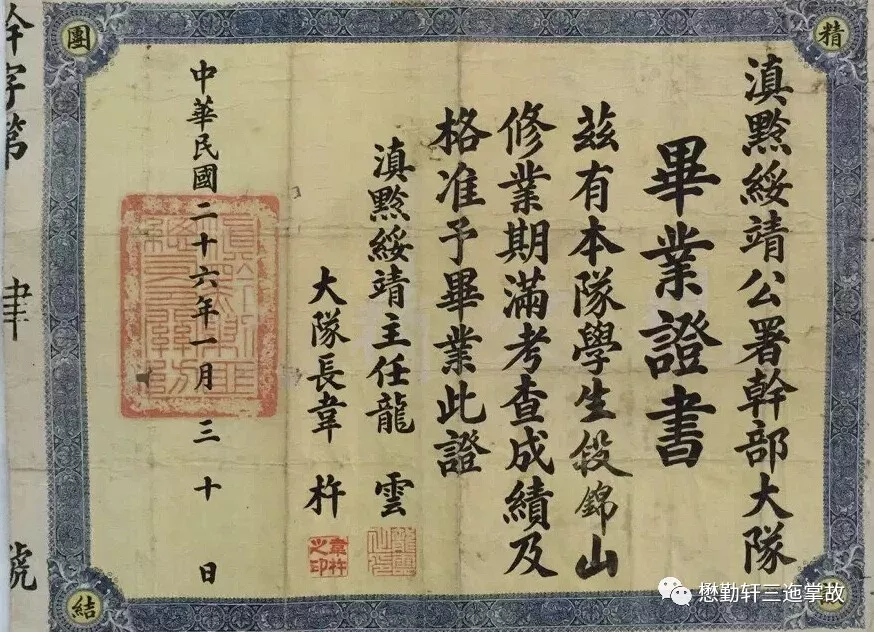 滇黔綏靖公署幹部大隊
畢業證書
兹有本隊學生段錦山
修業期滿考查成績及
格准予畢業此證
滇黔綏靖主任龍雲
大隊長韋杵
韋杵之印
中華民國二十六年一月三十日
字第
肆
號
精
團
結
懋勤轩三迤掌故